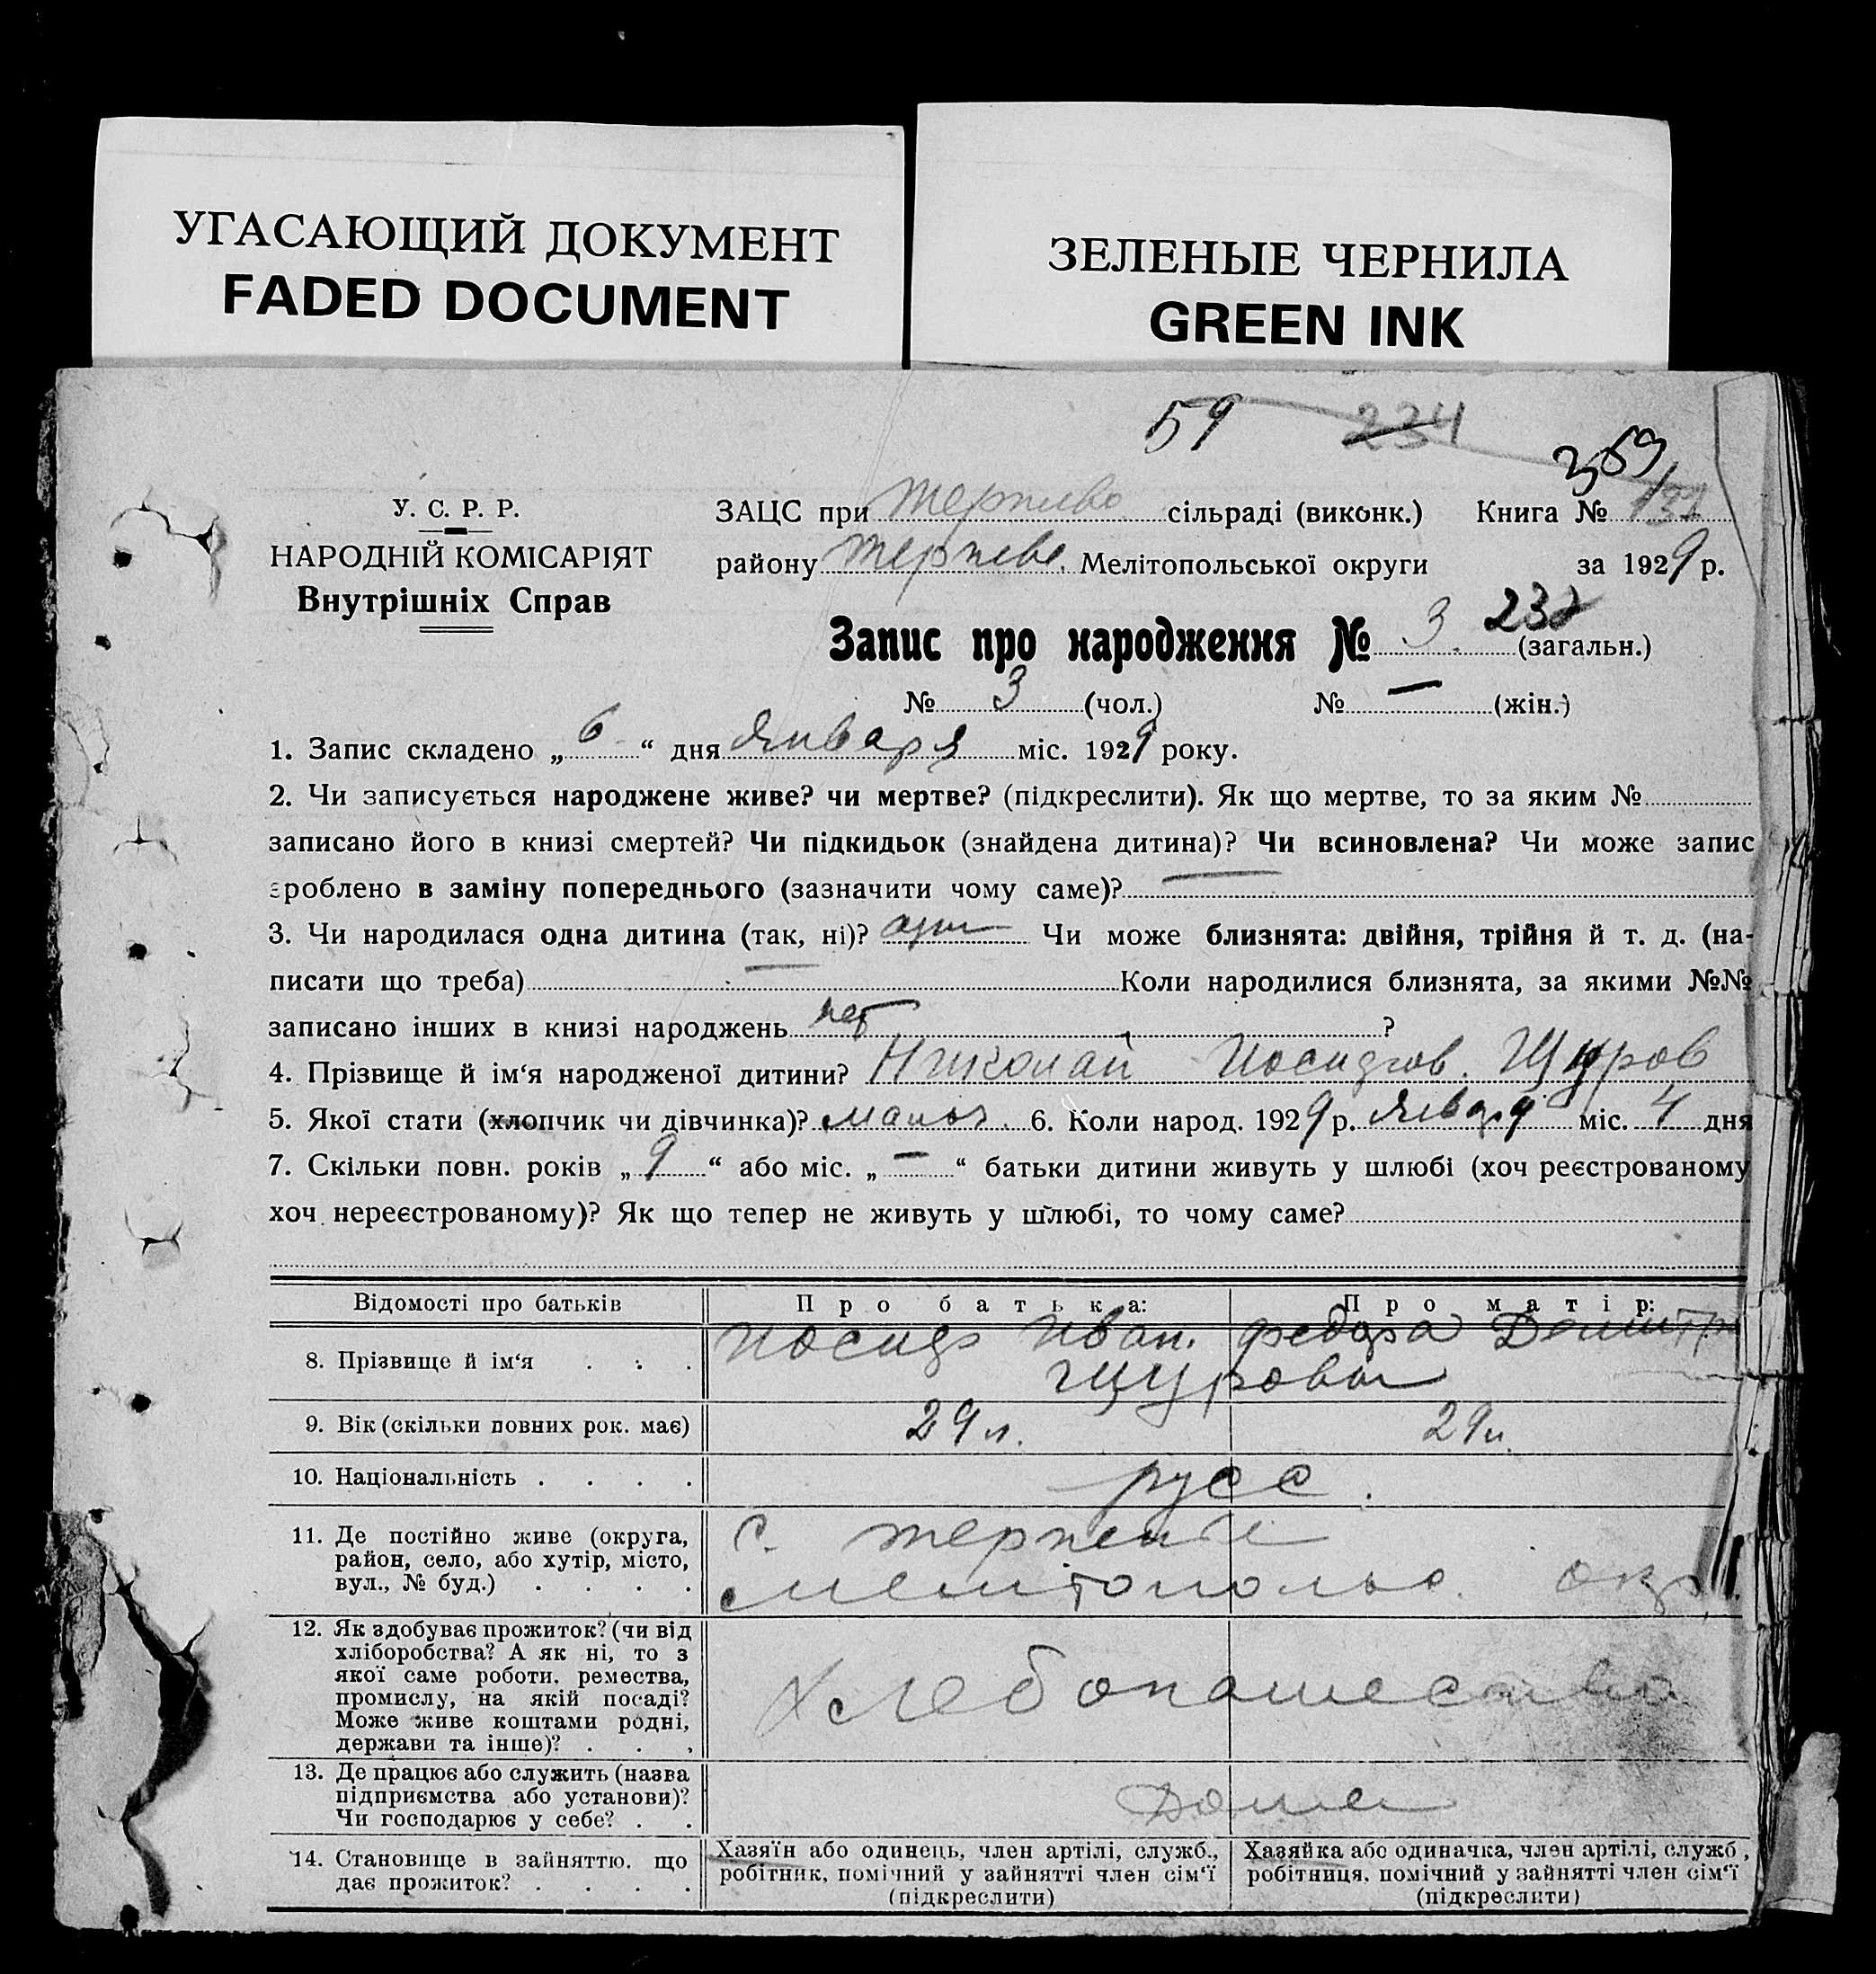 УГАСАЮЩИЙ ДОКУМЕНТ
FADED DOCUMENT
ЗЕЛЕНЫЕ ЧЕРНИЛА
GREEN INK
59 234
359
У. С. Р. Р.
НАРОДНІЙ КОМІСАРІЯТ
Внутрішніх Справ
ЗАЦС при Терпено сільраді (виконк.) Книга № 132
району Терпене. Мелітопольської округи за 1929 р.
Запис про народження № 3. 232 (загальн.)
№ 3 (чол.) № — (жін.)
1. Запис складено „ 6 “ дня Января міс. 1929 року.
2. Чи записується народжене живе? чи мертве? (підкреслити). Як що мертве, то за яким №
записано його в книзі смертей? Чи підкидьок (знайдена дитина)? Чи всиновлена? Чи може запис
зроблено в заміну попереднього (зазначити чому саме)? —
3. Чи народилася одна дитина (так, ні)? один Чи може близнята: двійня, трійня й т. д. (на-
писати що треба) — Коли народилися близнята, за якими №№
записано інших в книзі народжень нет ?
4. Прізвище й ім‘я народженої дитини? Николай Иосифов. Щуров
5. Якої стати (хлопчик чи дівчинка)? мальч. 6. Коли народ. 1929 р. Января міс. 4 дня
7. Скільки повн. років „ 9 “ або міс. „ — “ батьки дитини живуть у шлюбі (хоч реєстрованому
хоч нереєстрованому)? Як що тепер не живуть у шлюбі, то чому саме?
Відомості про батьків Про батька: Про матір:
8. Прізвище й ім‘я . . . Иосиф Иван. Федора Димитр
Щуровы
9. Вік (скільки повних рок. має) 29 л. 29 л.
10. Національність . . . . русс.
11. Де постійно живе (округа,
район, село, або хутір, місто,
вул., № буд.) . . . .
с. Терпение
Мелитопольс. окр.
12. Як здобуває прожиток? (чи від
хліборобства? А як ні, то з
якої саме роботи, ремества,
промислу, на якій посаді?
Може живе коштами родні,
держави та інше)? . . .
Хлебопашество
13. Де працює або служить (назва
підприємства або установи)?
Чи господарює у себе? . .
Дома
14. Становище в зайняттю, що
дає прожиток? . . . .
Хазяїн або одинець, член артілі, служб.,
робітник, помічний у зайнятті член сім‘ї
(підкреслити)
Хазяйка або одиначка, член артілі, служб.,
робітниця, помічний у зайнятті член сім‘ї
(підкреслити)